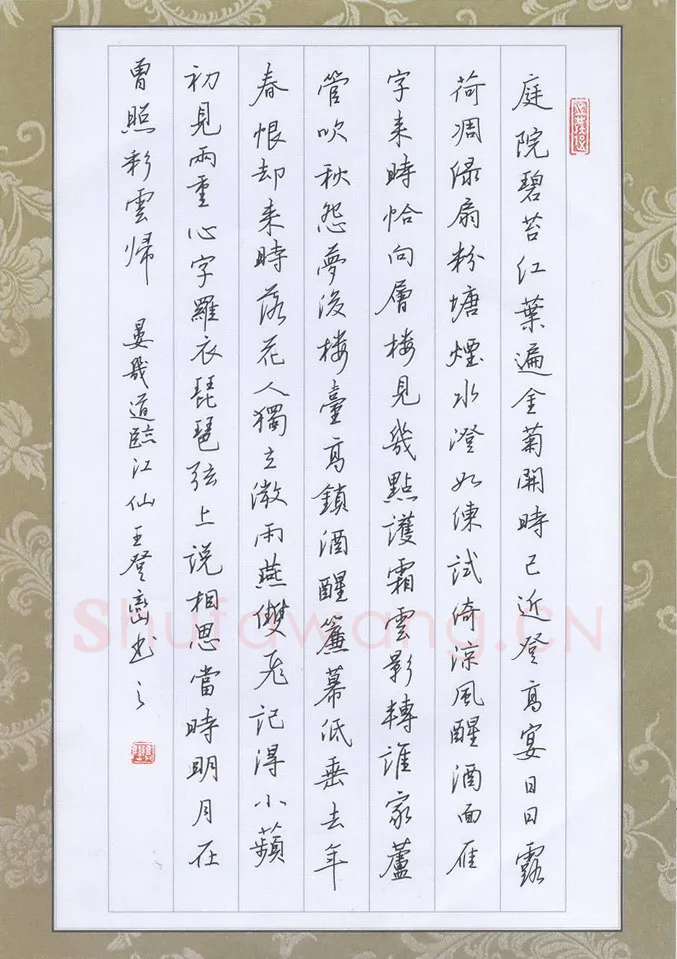 庭院碧苔紅葉遍金菊開時已近登高宴日日露
荷凋綠扇粉塘煙水澄如練試倚涼風醒酒面雁
字来時恰向層楼見幾點護霜雲影轉誰家蘆
管吹秋怨夢後楼臺高鎖酒醒簾幕低垂去年
春恨却来時落花人獨立微雨燕雙飛記得小蘋
初見兩重心字羅衣琵琶弦上説相思當時明月在
曾照彩雲歸 晏幾道臨江仙王登巒书之
Shufawang.CN